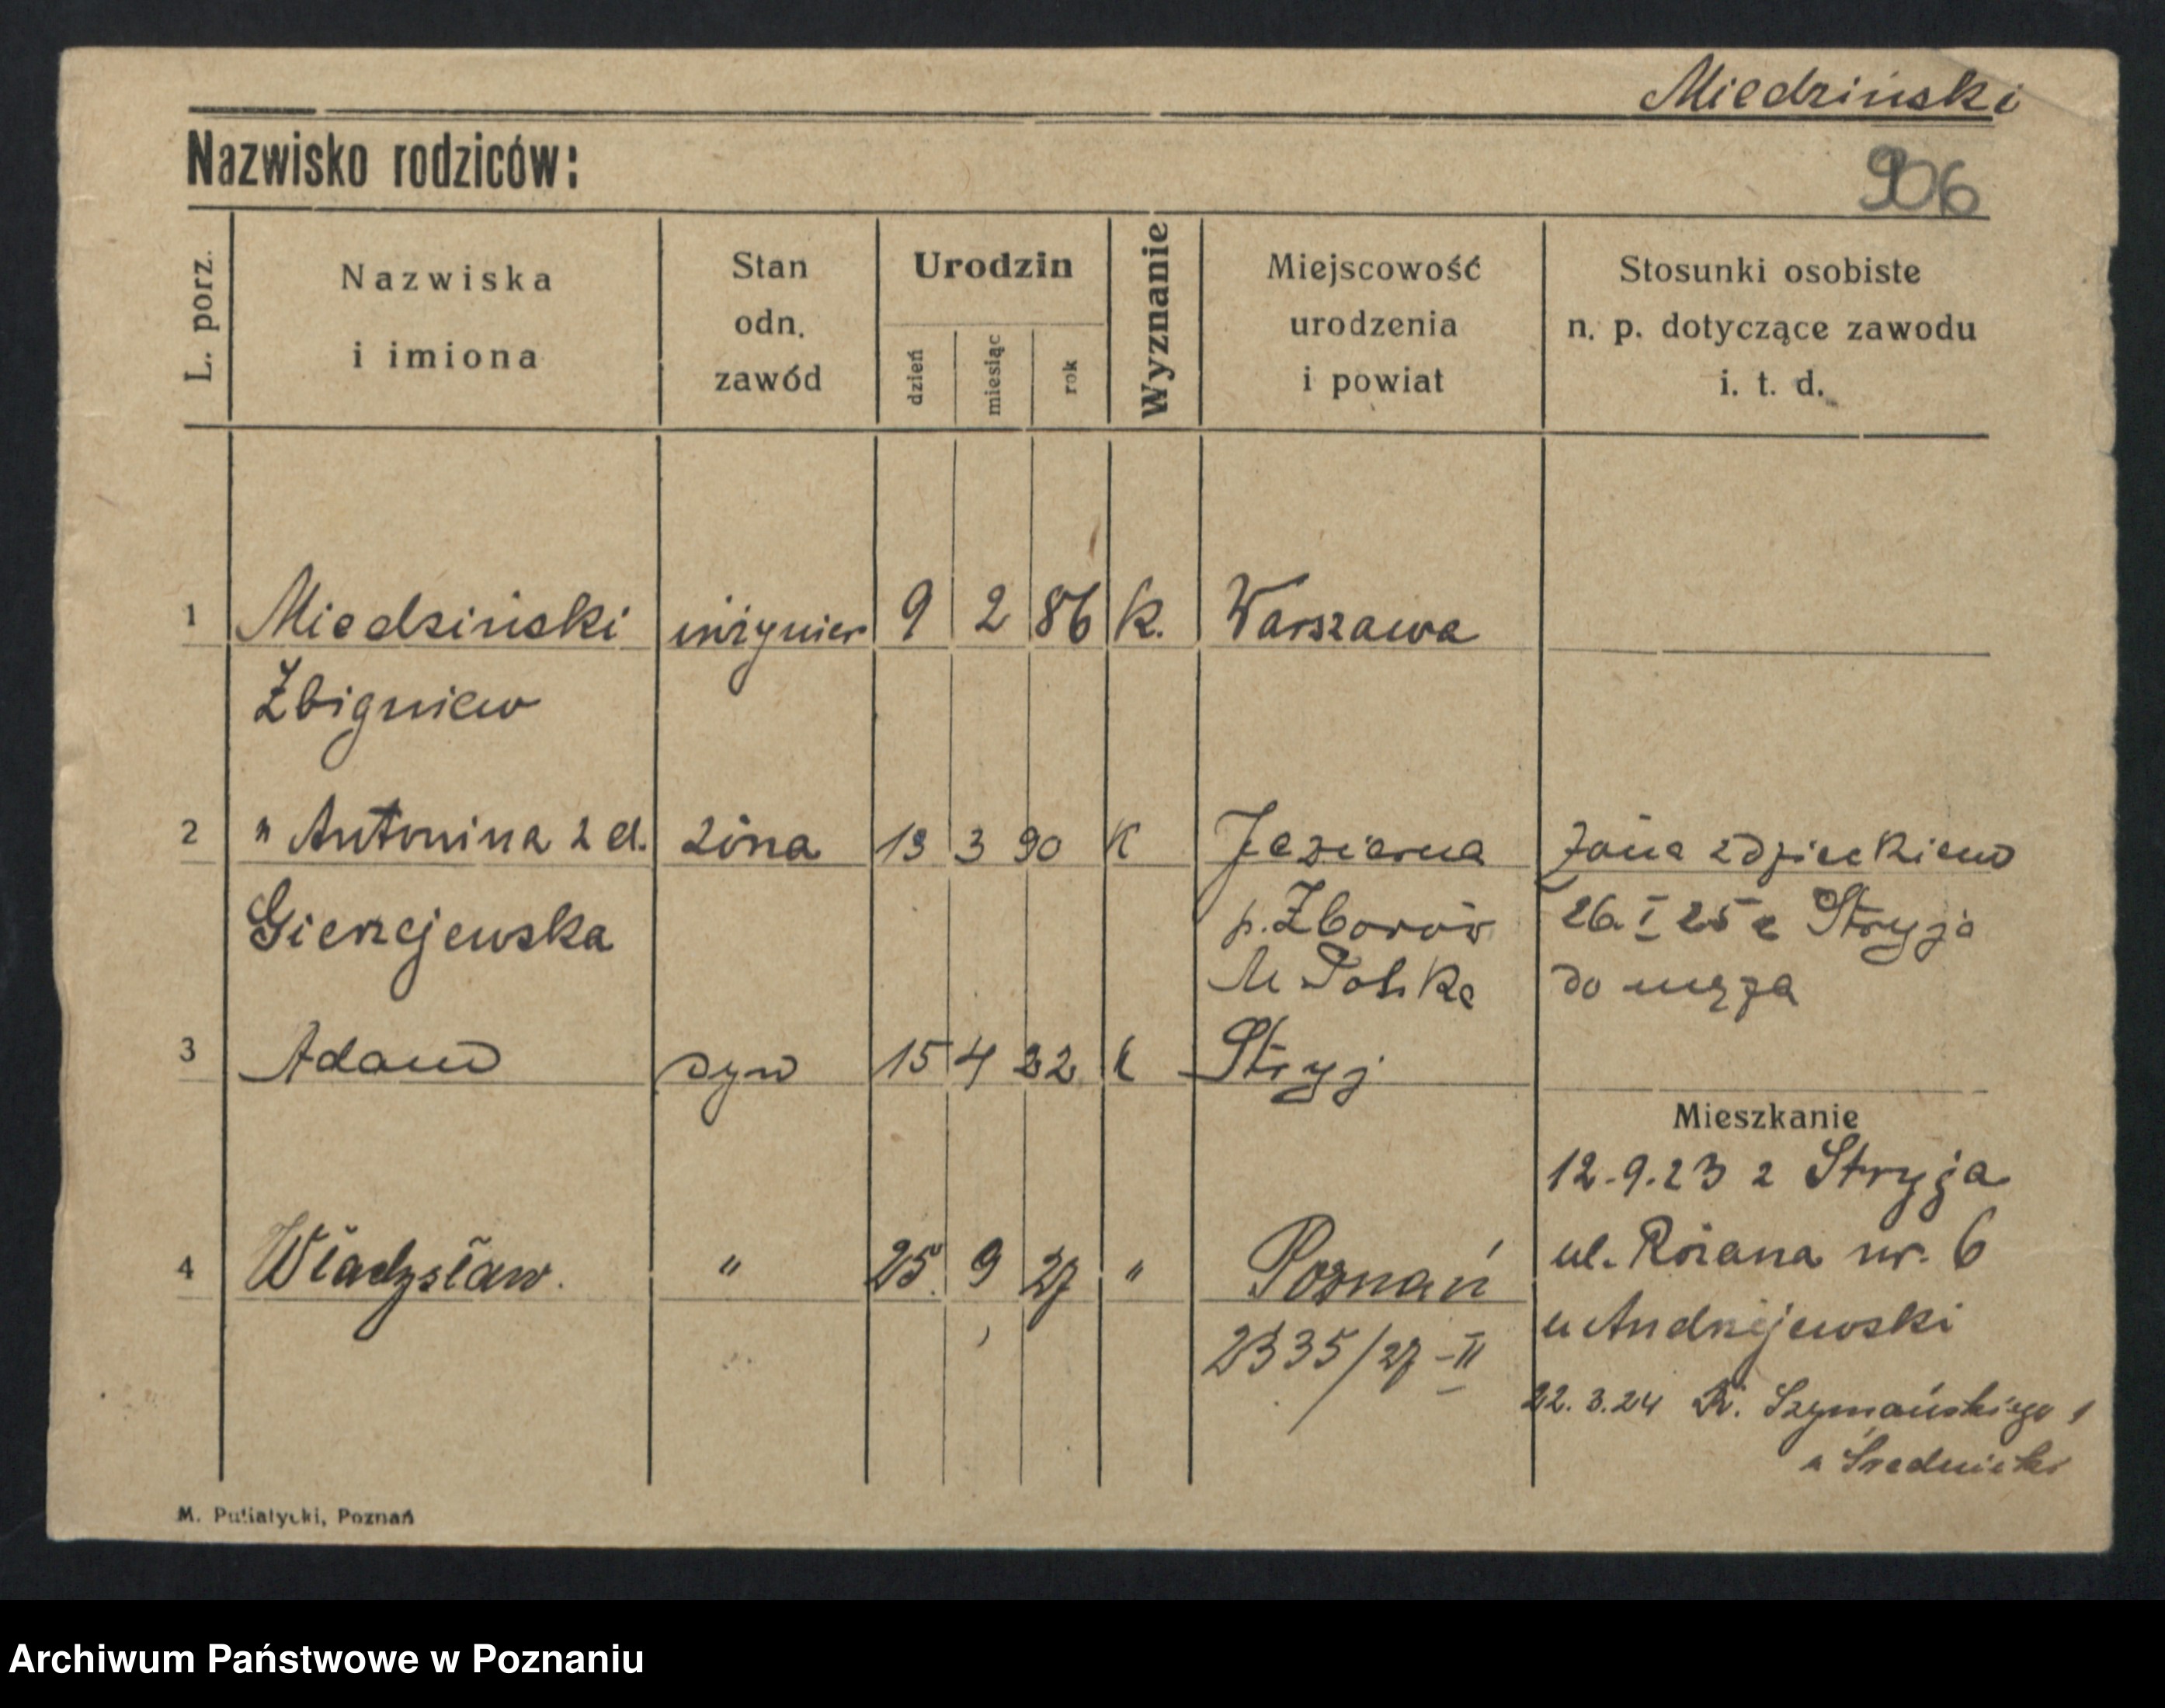 Miedziński
Nazwisko rodziców:
906
L. porz.
Nazwiska
i imiona
Stan
odn.
zawód
Urodzin
dzień
miesiąc
rok
Wyznanie
Miejscowość
urodzenia
i powiat
Stosunki osobiste
n. p. dotyczące zawodu
i. t. d.
1 Miedziński inżynier 9 2 86 k. Warszawa
Zbigniew
2 " Antonina z d. żona 13 3 90 K Jezierna żona z dzieckiem
Gierzejewska p. Zborów 26 I 25 z Stryja
M Polska do męża
3 Adam syn 15 4 22 k Stryj
Mieszkanie
12.9.23 z Stryja
ul. Różana nr. 6
4 Władysław. " 25. 9 27 " Poznań
u Andrzejewski
2335/27-II
22.3.24 Szymańskiego 1
u Średnicki
M. Putiatycki, Poznań
Archiwum Państwowe w Poznaniu